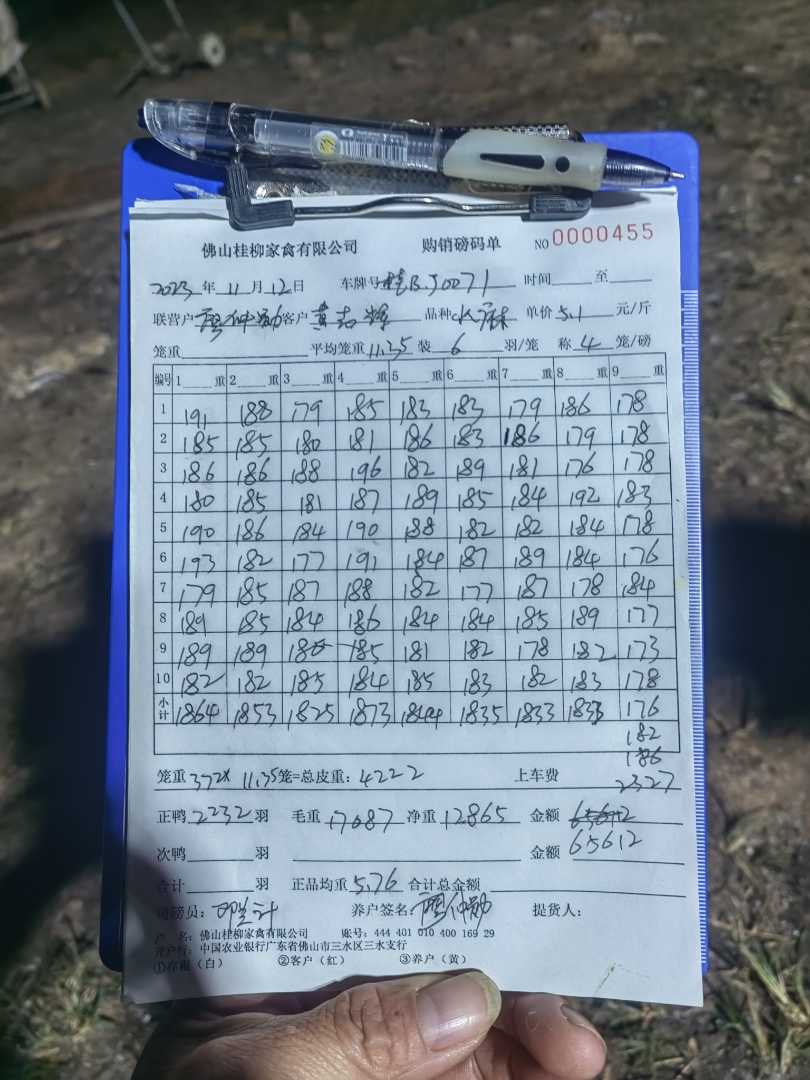 佛山桂柳家禽有限公司 购销磅码单 NO 0000455
2023年 11月 12日 车牌号 桂B.J0071 时间 至
联营户 廖仲勋 客户 黄志辉 品种 单价 5.1 元/斤
笼重 平均笼重 11.35 装 6 羽/笼 称 4 笼/磅
编号 1 重 2 重 3 重 4 重 5 重 6 重 7 重 8 重 9 重
1 191 188 179 185 183 183 179 186 178
2 185 185 180 181 186 183 186 179 178
3 186 186 188 196 182 189 181 176 178
4 180 185 181 187 189 185 184 192 183
5 190 186 184 190 188 182 182 184 178
6 193 182 177 191 184 187 189 184 176
7 179 185 187 188 182 177 187 178 184
8 189 185 184 186 184 184 185 189 177
9 189 189 180 185 181 182 178 182 173
10 182 182 185 184 185 183 182 183 178
小计 1864 1853 1825 1873 1844 1835 1833 1833 176
182
186
笼重 372x 11.35 笼=总皮重: 4222 上车费 2327
正鸭 2232 羽 毛重 17087 净重 12865 金额 65612
次鸭 羽 金额 65612
合计 羽 正品均重 5.76 合计总金额
司磅员: 养户签名: 廖仲勋 提货人:
户 名: 佛山桂柳家禽有限公司 账号: 444 401 010 400 169 29
开户行: 中国农业银行广东省佛山市三水区三水支行
①存根(白) ②客户(红) ③养户(黄)